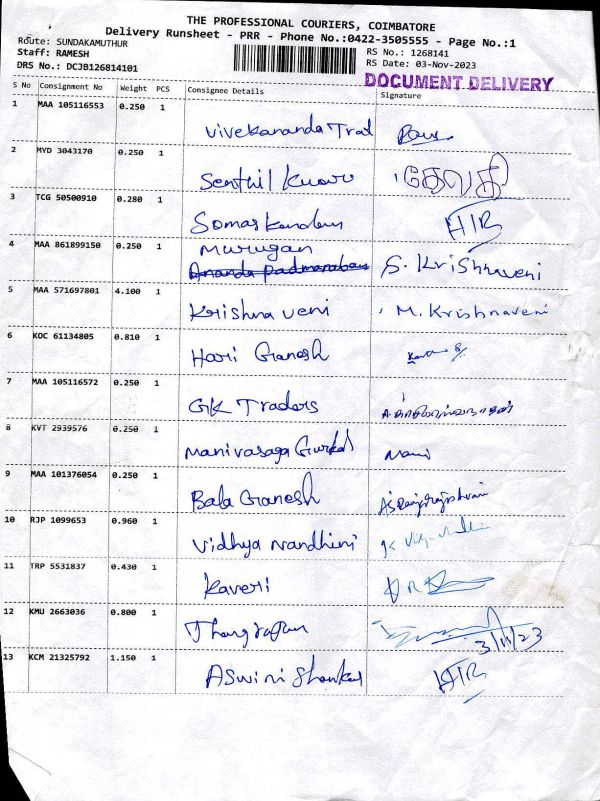 THE PROFESSIONAL COURIERS, COIMBATORE
Delivery Runsheet - PRR - Phone No.:0422-3505555 - Page No.:1
Route: SUNDAKAMUTHUR RS No.: 1268141
Staff: RAMESH RS Date: 03-Nov-2023
DRS No.: DCJB126814101 DOCUMENT DELIVERY
S No Consignment No Weight PCS Consignee Details Signature
1 MAA 105116553 0.250 1
Vivekananda
2 MYD 3043170 0.250 1
Senthil தேவகி
3 TCG 50500910 0.280 1
Somaskandan
4 MAA 861899150 0.250 1 Murugan
Ananda Padmanaban S. Krishnaveni
5 MAA 571697801 4.100 1
Krishna veni M. Krishnaveni
6 KOC 61134805 0.810 1
Hari Ganesh
7 MAA 105116572 0.250 1
GK Traders
8 KVT 2939576 0.250 1
Manivasaga Mani
9 MAA 101376054 0.250 1
Bala Ganesh
10 RJP 1099653 0.960 1
Vidhya Nandhini
11 TRP 5531837 0.430 1
Kaveri
12 KMU 2663036 0.800 1
Thangrajan 3/11/23
13 KCM 21325792 1.150 1
Aswini Shankar